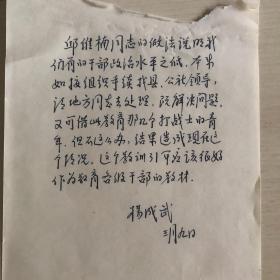 邱维楠同志的做法说明我
们有的干部政治水平之低。本来
如按组织手续找县、公社领导，
请地方同志去处理，既解决问题，
又可借此教育那几个打战士的青
年，但不这么办，结果造成现在这
个情况。这个教训引以应该很好
作为教育各级干部的教材。
杨成武
三月九日